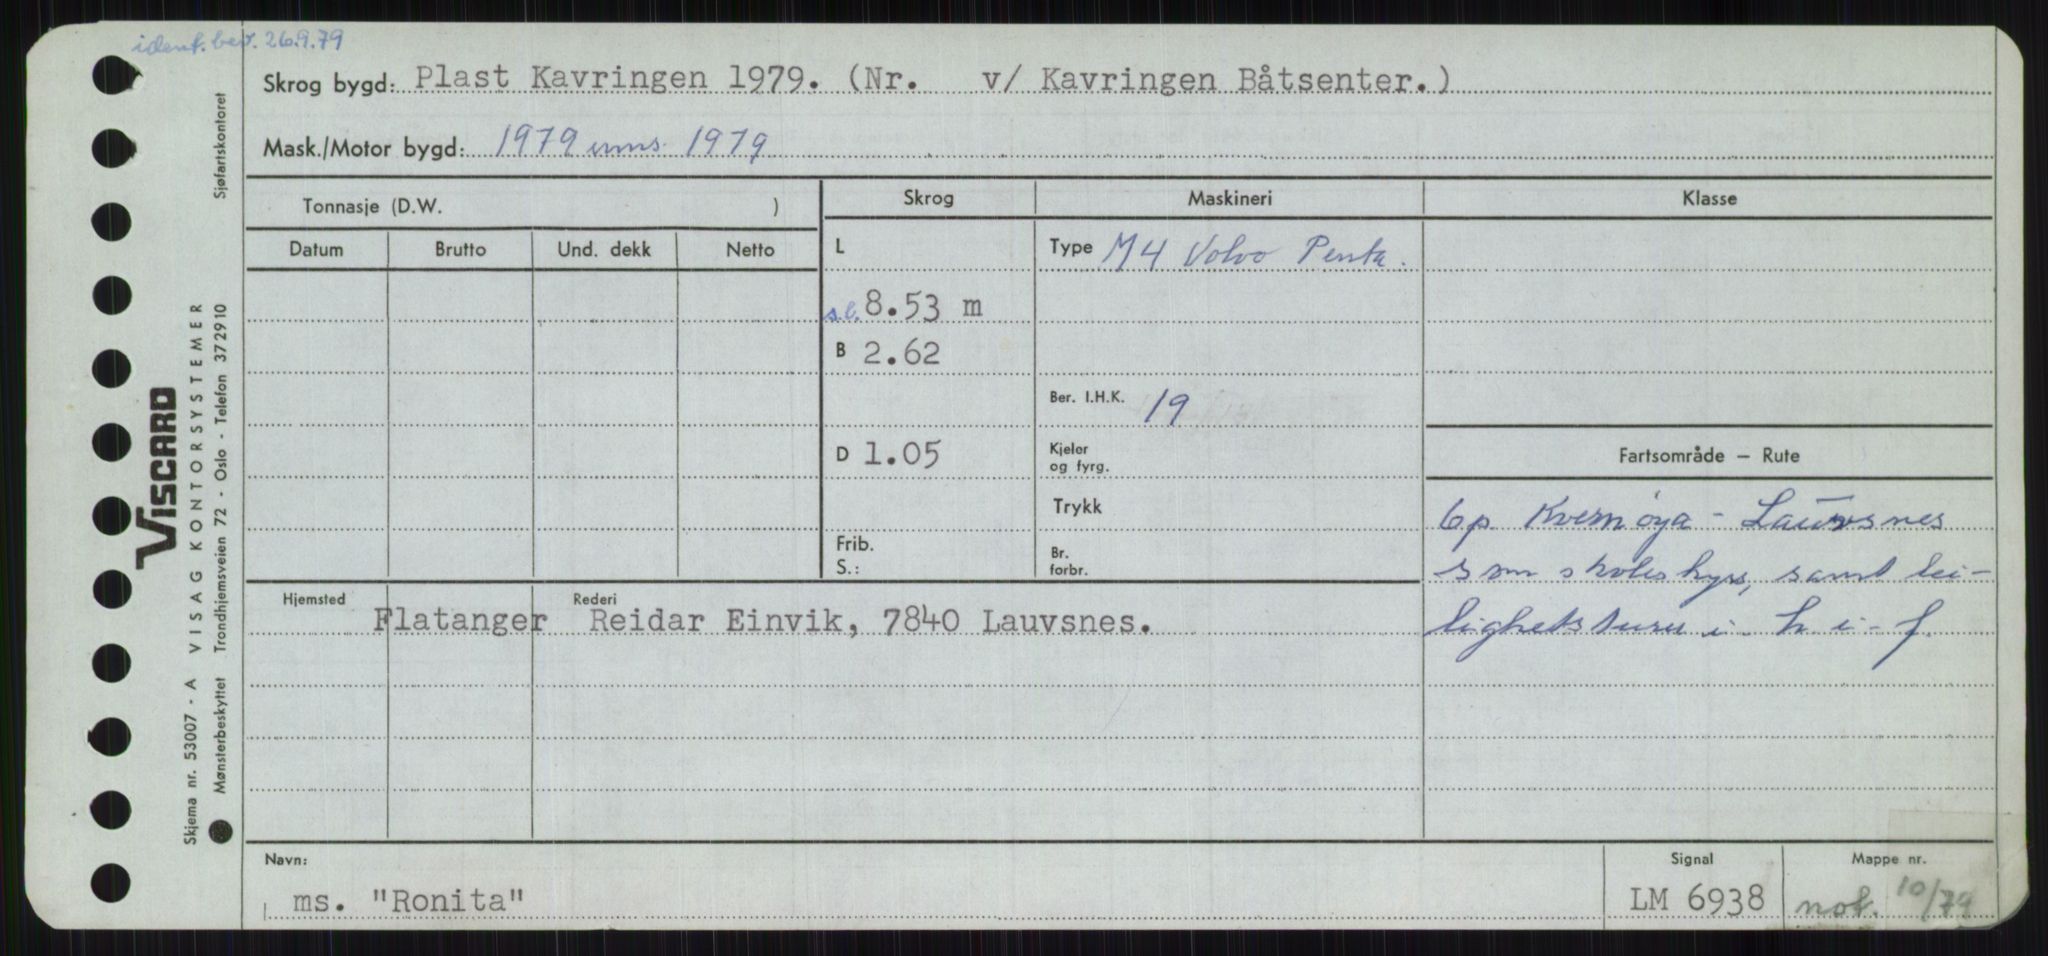 ident. bev. 26.9.79
Skrog bygd: Plast Kavringen 1979. (Nr. v/ Kavringen Båtsenter.)
Mask./Motor bygd: 1979 ums. 1979
Tonnasje (D.W. )
Skrog
Maskineri
Klasse
Datum
Brutto
Und. dekk
Netto
L
Type M4 Volvo Penta.
s.l. 8.53 m
B 2.62
Ber. I.H.K. 19
D 1.05
Kjeler
og fyrg.
Fartsområde — Rute
Trykk
6p Kvernøya - Lauvsnes
Frib.
S.:
Br.
forbr.
som skoleskyss, samt lei-
Hjemsted
Rederi
Flatanger Reidar Einvik, 7840 Lauvsnes.
lighetsturer i h i f
Navn:
Signal
Mappe nr.
ms. "Ronita"
LM 6938
not. 10/79
Sjøfartskontoret
VISCARD
VISAG KONTORSYSTEMER
Trondhjemsveien 72 - Oslo - Telefon 372910
Skjema nr. 53007 - A
Mønsterbeskyttet